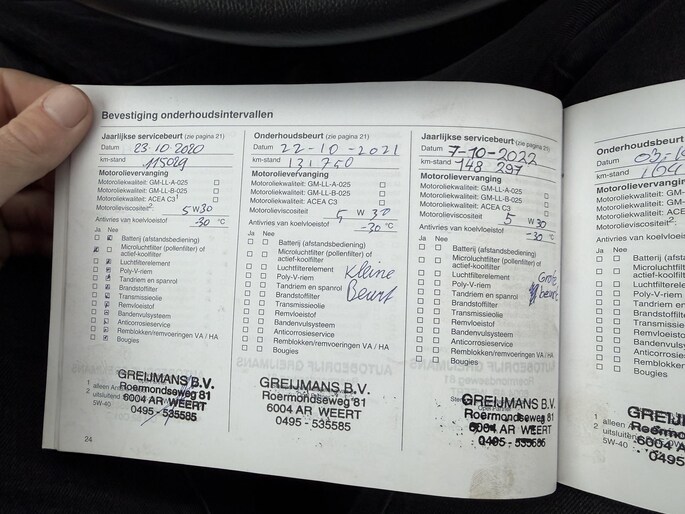 Bevestiging onderhoudsintervallen
Jaarlijkse servicebeurt (zie pagina 21)
Datum 23 10 2020
km-stand 115029
Motorolievervanging
Motoroliekwaliteit: GM-LL-A-025
Motoroliekwaliteit: GM-LL-B-025
Motoroliekwaliteit: ACEA C3¹
Motorolieviscositeit²: 5 W 30
Antivries van koelvloeistof -30 °C
Ja Nee
Batterij (afstandsbediening)
Microluchtfilter (pollenfilter) of
actief-koolfilter
Luchtfilterelement
Poly-V-riem
Tandriem en spanrol
Brandstoffilter
Transmissieolie
Remvloeistof
Bandenvulsysteem
Anticorrosieservice
Remblokken/remvoeringen VA / HA
Bougies
GREIJMANS B.V.
Roermondseweg 81
6004 AR WEERT
0495 - 535585
1 alleen
2 uitsluitend
5W-40
24
Onderhoudsbeurt (zie pagina 21)
Datum 22-10-2021
km-stand 131750
Motorolievervanging
Motoroliekwaliteit: GM-LL-A-025
Motoroliekwaliteit: GM-LL-B-025
Motoroliekwaliteit: ACEA C3
Motorolieviscositeit 5 W 30
Antivries van koelvloeistof -30 °C
Ja Nee
Batterij (afstandsbediening)
Microluchtfilter (pollenfilter) of
actief-koolfilter
Luchtfilterelement
Poly-V-riem
Tandriem en spanrol
Brandstoffilter
Transmissieolie
Remvloeistof
Bandenvulsysteem
Anticorrosieservice
Remblokken/remvoeringen VA / HA
Bougies
Kleine
Beurt
GREIJMANS B.V.
Roermondseweg 81
6004 AR WEERT
0495 - 535585
Jaarlijkse servicebeurt (zie pagina 21)
Datum 7-10-2022
km-stand 148 297
Motorolievervanging
Motoroliekwaliteit: GM-LL-A-025
Motoroliekwaliteit: GM-LL-B-025
Motoroliekwaliteit: ACEA C3
Motorolieviscositeit 5 W 30
Antivries van koelvloeistof -30 °C
Ja Nee
Batterij (afstandsbediening)
Microluchtfilter (pollenfilter) of
actief-koolfilter
Luchtfilterelement
Poly-V-riem
Tandriem en spanrol
Brandstoffilter
Transmissieolie
Remvloeistof
Bandenvulsysteem
Anticorrosieservice
Remblokken/remvoeringen VA / HA
Bougies
Grote
beurt
GREIJMANS B.V.
Roermondseweg 81
6004 AR WEERT
0495 - 535585
Onderhoudsbeurt
Datum 03-
km-stand 164
Motorolievervanging
Motoroliekwaliteit: GM
Motoroliekwaliteit: GM-
Motoroliekwaliteit: ACE
Motorolieviscositeit²:
Antivries van koelvloeisto
Ja Nee
Batterij (afsta
Microluchtfilte
actief-koolfilte
Luchtfilterele
Poly-V-riem
Tandriem en
Brandstoffilte
Transmissie
Remvloeisto
Bandenvuls
Anticorrosie
Remblokken
Bougies
GREIJM
Roermon
6004 A
0495
1 alleen
2 uitsluiten
5W-40